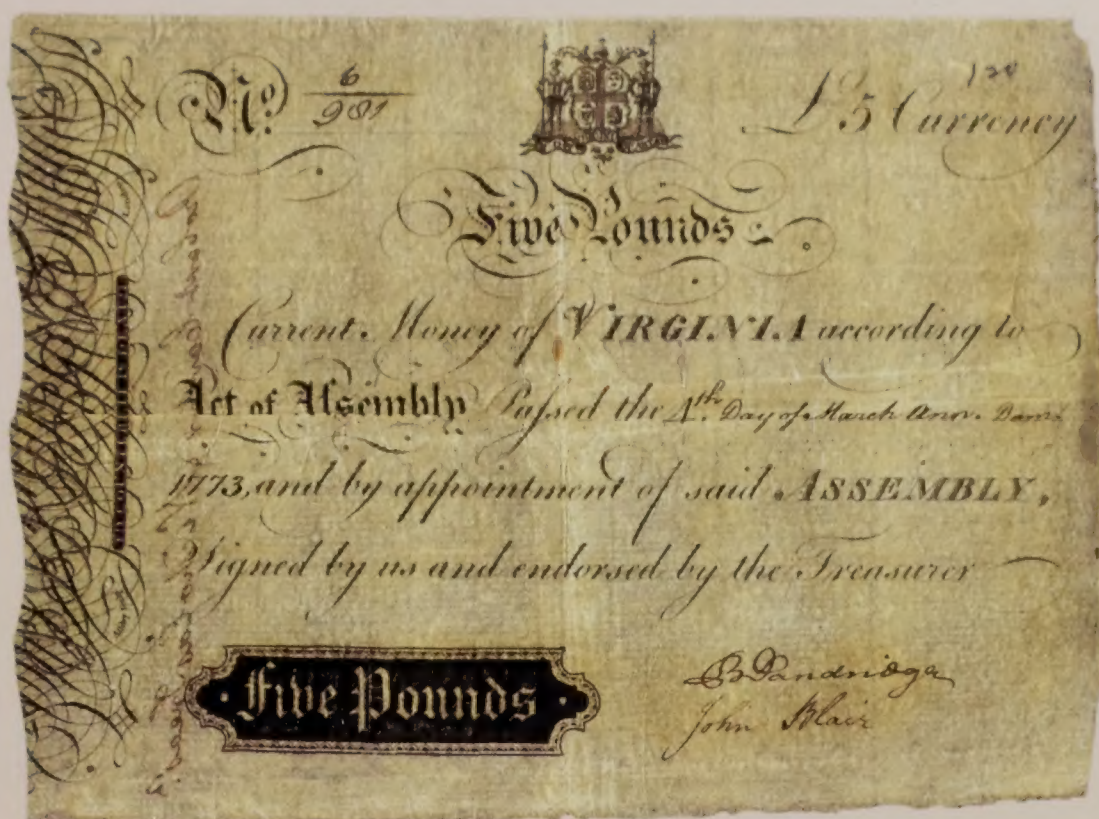 No. 6
981
£5 Currency
120
Five Pounds
Current Money of VIRGINIA according to
Act of Assembly Passed the 4th. Day of March Ann. Dom.
1773, and by appointment of said ASSEMBLY,
Signed by us and endorsed by the Treasurer
Five Pounds
B Dandridge
John Blair